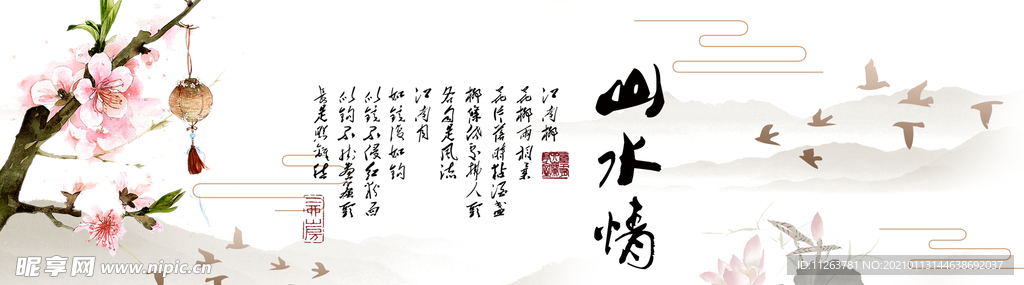 山水情
江南柳
花柳两相柔
花片落时黏酒盏
柳条低处拂人头
各自是风流
江南月
如镜复如钩
似镜不侵红粉面
似钩不挂画帘头
长是照离愁
昵享网 www.nipic.cn
ID:11263781 NO:20210113144638692037